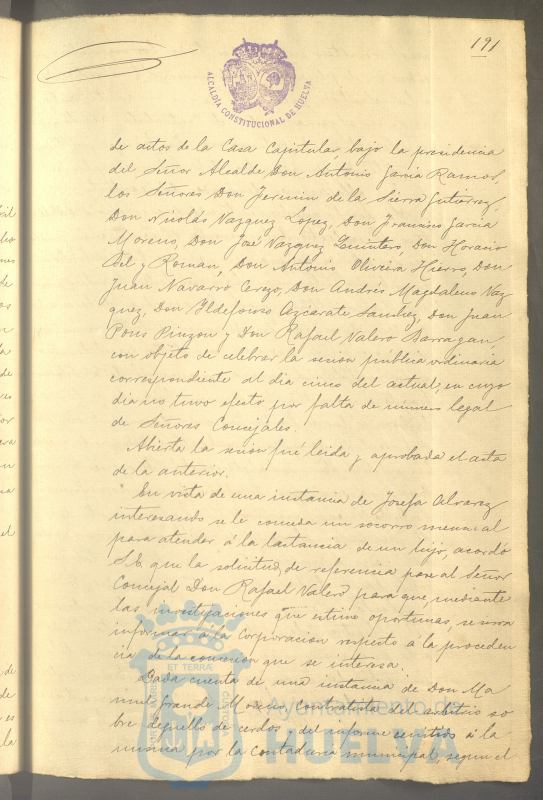 191
ALCALDÍA CONSTITUCIONAL DE HUELVA
de actos de la Casa Capitular bajo la presidencia
del Señor Alcalde Don Antonio Garcia Ramos,
los Señores Don Fermin de la Sierra Gutierrez,
Don Nicolás Vazquez Lopez, Don Francisco Garcia
Moreno, Don José Vazquez Quintero, Don Horacio
Bel y Roman, Don Antonio Oliveira Hierro, Don
Juan Navarro Cerezo, Don Andrés Magdaleno Vaz
quez, Don Yldefonso Azcárate Sanchez, Don Juan
Pons Pinzon y Don Rafael Valero Barragan
con objeto de celebrar la sesion pública ordinaria
correspondiente al dia cinco del actual, en cuyo
dia no tuvo efecto por falta de número legal
de Señores Concejales.
Abierta la sesion fué leida y aprobada el acta
de la anterior.
En vista de una instancia de Josefa Alvarez
interesando se le conceda un socorro mensual
para atender á la lactancia de un hijo, acordó
S.E. que la solicitud de referencia pase al Señor
Concejal Don Rafael Valero para que, mediante
las investigaciones que estime oportunas, se sirva
informar á la Corporacion respecto á la proceden
cia de la concesion que se interesa.
Dada cuenta de una instancia de Don Ma
nuel Grande Moreno, Contratista del arbitrio so
bre degüello de cerdos, del informe emitido á la
misma por la Contaduria municipal, segun el
ET TERRÆ
Ayuntamiento de
HUELVA